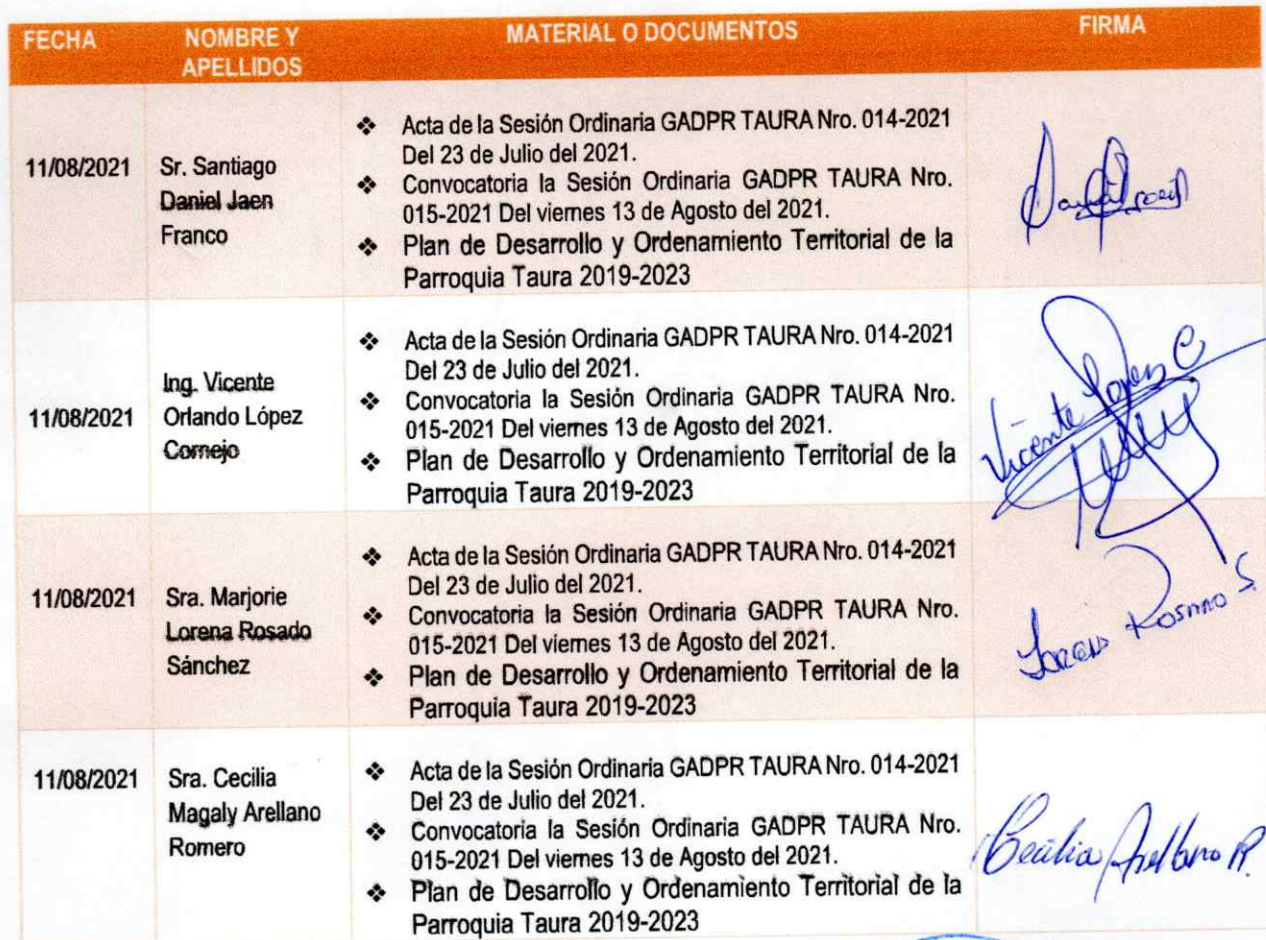 FECHA
NOMBRE Y
APELLIDOS
MATERIAL O DOCUMENTOS
FIRMA
11/08/2021
Sr. Santiago
Daniel Jaen
Franco
❖ Acta de la Sesión Ordinaria GADPR TAURA Nro. 014-2021
Del 23 de Julio del 2021.
❖ Convocatoria la Sesión Ordinaria GADPR TAURA Nro.
015-2021 Del viernes 13 de Agosto del 2021.
❖ Plan de Desarrollo y Ordenamiento Territorial de la
Parroquia Taura 2019-2023
11/08/2021
Ing. Vicente
Orlando López
Cornejo
❖ Acta de la Sesión Ordinaria GADPR TAURA Nro. 014-2021
Del 23 de Julio del 2021.
❖ Convocatoria la Sesión Ordinaria GADPR TAURA Nro.
015-2021 Del viernes 13 de Agosto del 2021.
❖ Plan de Desarrollo y Ordenamiento Territorial de la
Parroquia Taura 2019-2023
Vicente Lopez C
11/08/2021
Sra. Marjorie
Lorena Rosado
Sánchez
❖ Acta de la Sesión Ordinaria GADPR TAURA Nro. 014-2021
Del 23 de Julio del 2021.
❖ Convocatoria la Sesión Ordinaria GADPR TAURA Nro.
015-2021 Del viernes 13 de Agosto del 2021.
❖ Plan de Desarrollo y Ordenamiento Territorial de la
Parroquia Taura 2019-2023
Lorena Rosado S.
11/08/2021
Sra. Cecilia
Magaly Arellano
Romero
❖ Acta de la Sesión Ordinaria GADPR TAURA Nro. 014-2021
Del 23 de Julio del 2021.
❖ Convocatoria la Sesión Ordinaria GADPR TAURA Nro.
015-2021 Del viernes 13 de Agosto del 2021.
❖ Plan de Desarrollo y Ordenamiento Territorial de la
Parroquia Taura 2019-2023
Cecilia Arellano R.